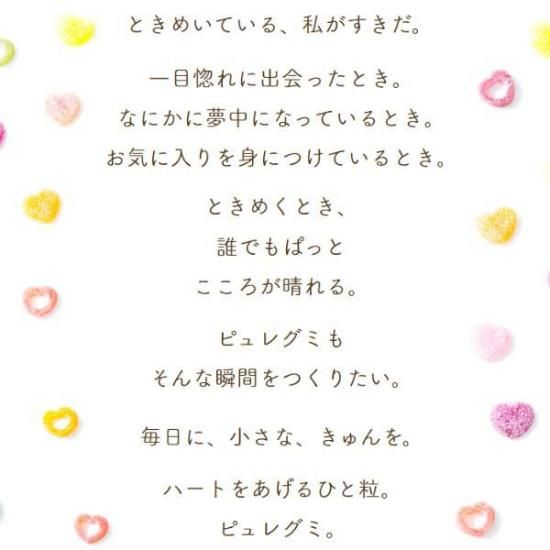 ときめいている、私がすきだ。
一目惚れに出会ったとき。
なにかに夢中になっているとき。
お気に入りを身につけているとき。
ときめくとき、
誰でもぱっと
こころが晴れる。
ピュレグミも
そんな瞬間をつくりたい。
毎日に、小さな、きゅんを。
ハートをあげるひと粒。
ピュレグミ。